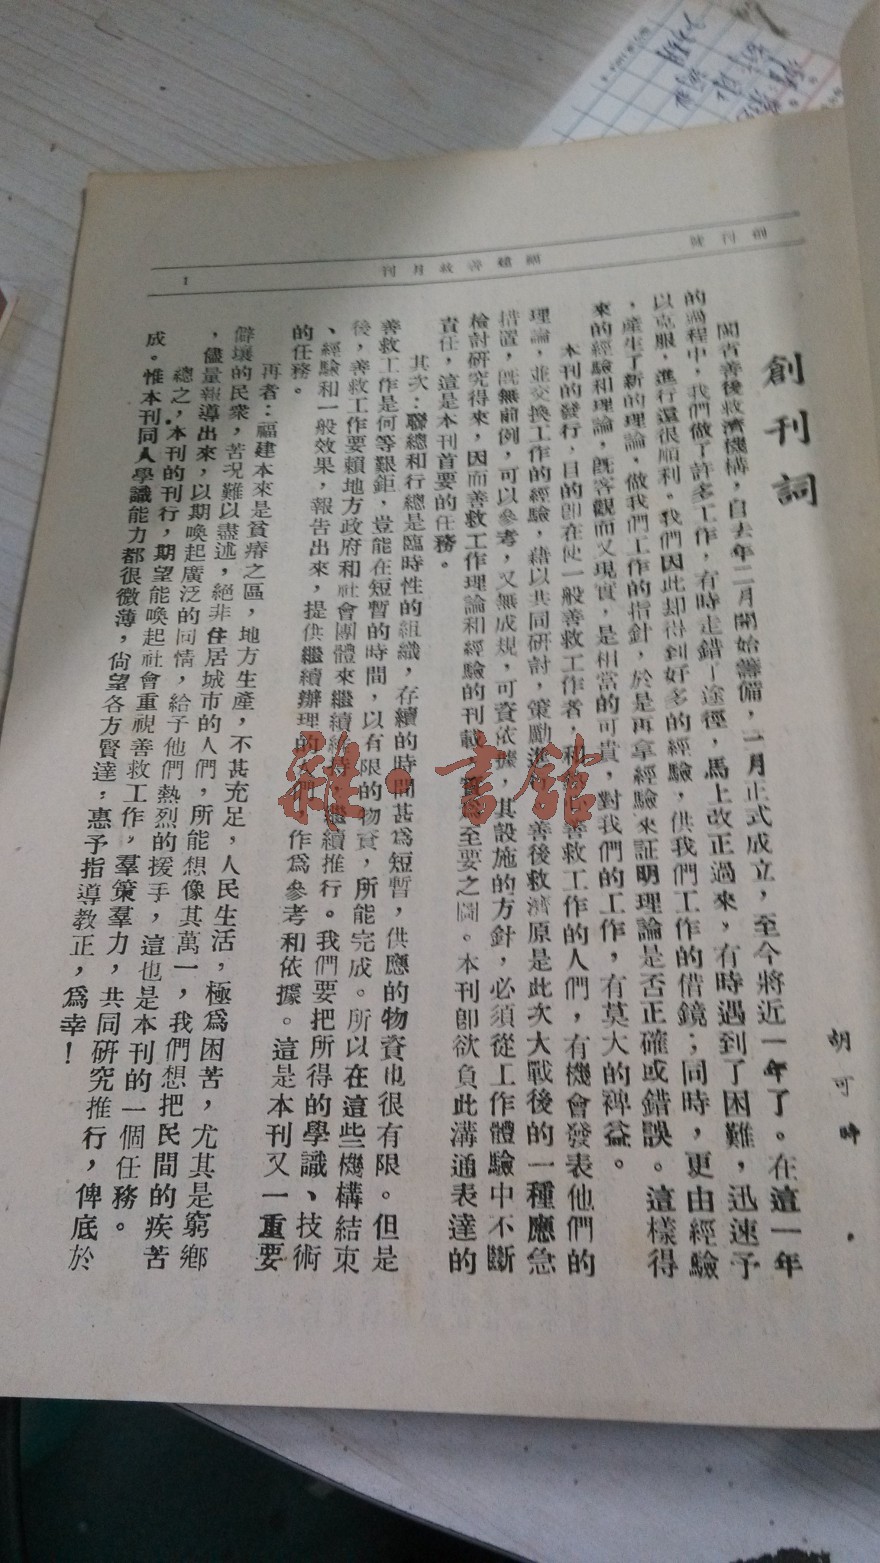 創刊號
福建善救月刊
1
創刊詞
胡可時
閩省善後救濟機構，自去年二月開始籌備，二月正式成立，至今將近一年了。在這一年
的過程中，我們做了許多工作，有時走錯一途徑，馬上改正過來，有時遇到了困難，迅速予
以克服，進行還很順利。我們因此却得到好多的經驗，供我們工作的借鏡；同時，更由經驗
，產生了新的理論，做我們工作的指針，於是再拿經驗來証明理論是否正確或錯誤。這樣得
來的經驗和理論，旣客觀而又現實，是相當的可貴，對我們的工作，有莫大的裨益。
本刊的發行，目的卽在使一般善救工作者，和善救工作的人們，有機會發表他們的
理論，並交換工作的經驗，藉以共同研討，策勵進，善後救濟原是此次大戰後的一種應急
措置，旣無前例，可以參考，又無成規，可資依據，其設施的方針，必須從工作體驗中不斷
檢討研究得來，因而善救工作理論和經驗的刊載，實爲至要之圖。本刊卽欲負此溝通表達的
責任，這是本刊首要的任務。
其次：聯總和行總是臨時性的組織，存續的時間甚爲短暫，供應的物資也很有限。但是
善救工作是何等艱鉅，豈能在短暫的時間，以有限的物資，所能完成。所以在這些機構結束
後，善救工作要賴地方政府和社會團體來繼續維持，繼續推行。我們要把所得的學識、技術
、經驗和一般效果，報告出來，提供繼續辦理的人們，作爲參考和依據。這是本刊又一重要
的任務。
再者：福建本來是貧瘠之區，地方生產，不甚充足，人民生活，極爲困苦，尤其是窮鄉
僻壤的民衆，苦況難以盡述，絕非住居城市的人們，所能想像其萬一，我們想把民間的疾苦
，儘量報導出來，以期喚起廣泛的同情，給予他們熱烈的援手，這也是本刊的一個任務。
總之，本刊的刊行，期望能喚起社會重視善救工作，羣策羣力，共同硏究推行，俾底於
成。惟本刊同人學識能力都很微薄，尙望各方賢達，惠予指導教正，爲幸！
雜·書館